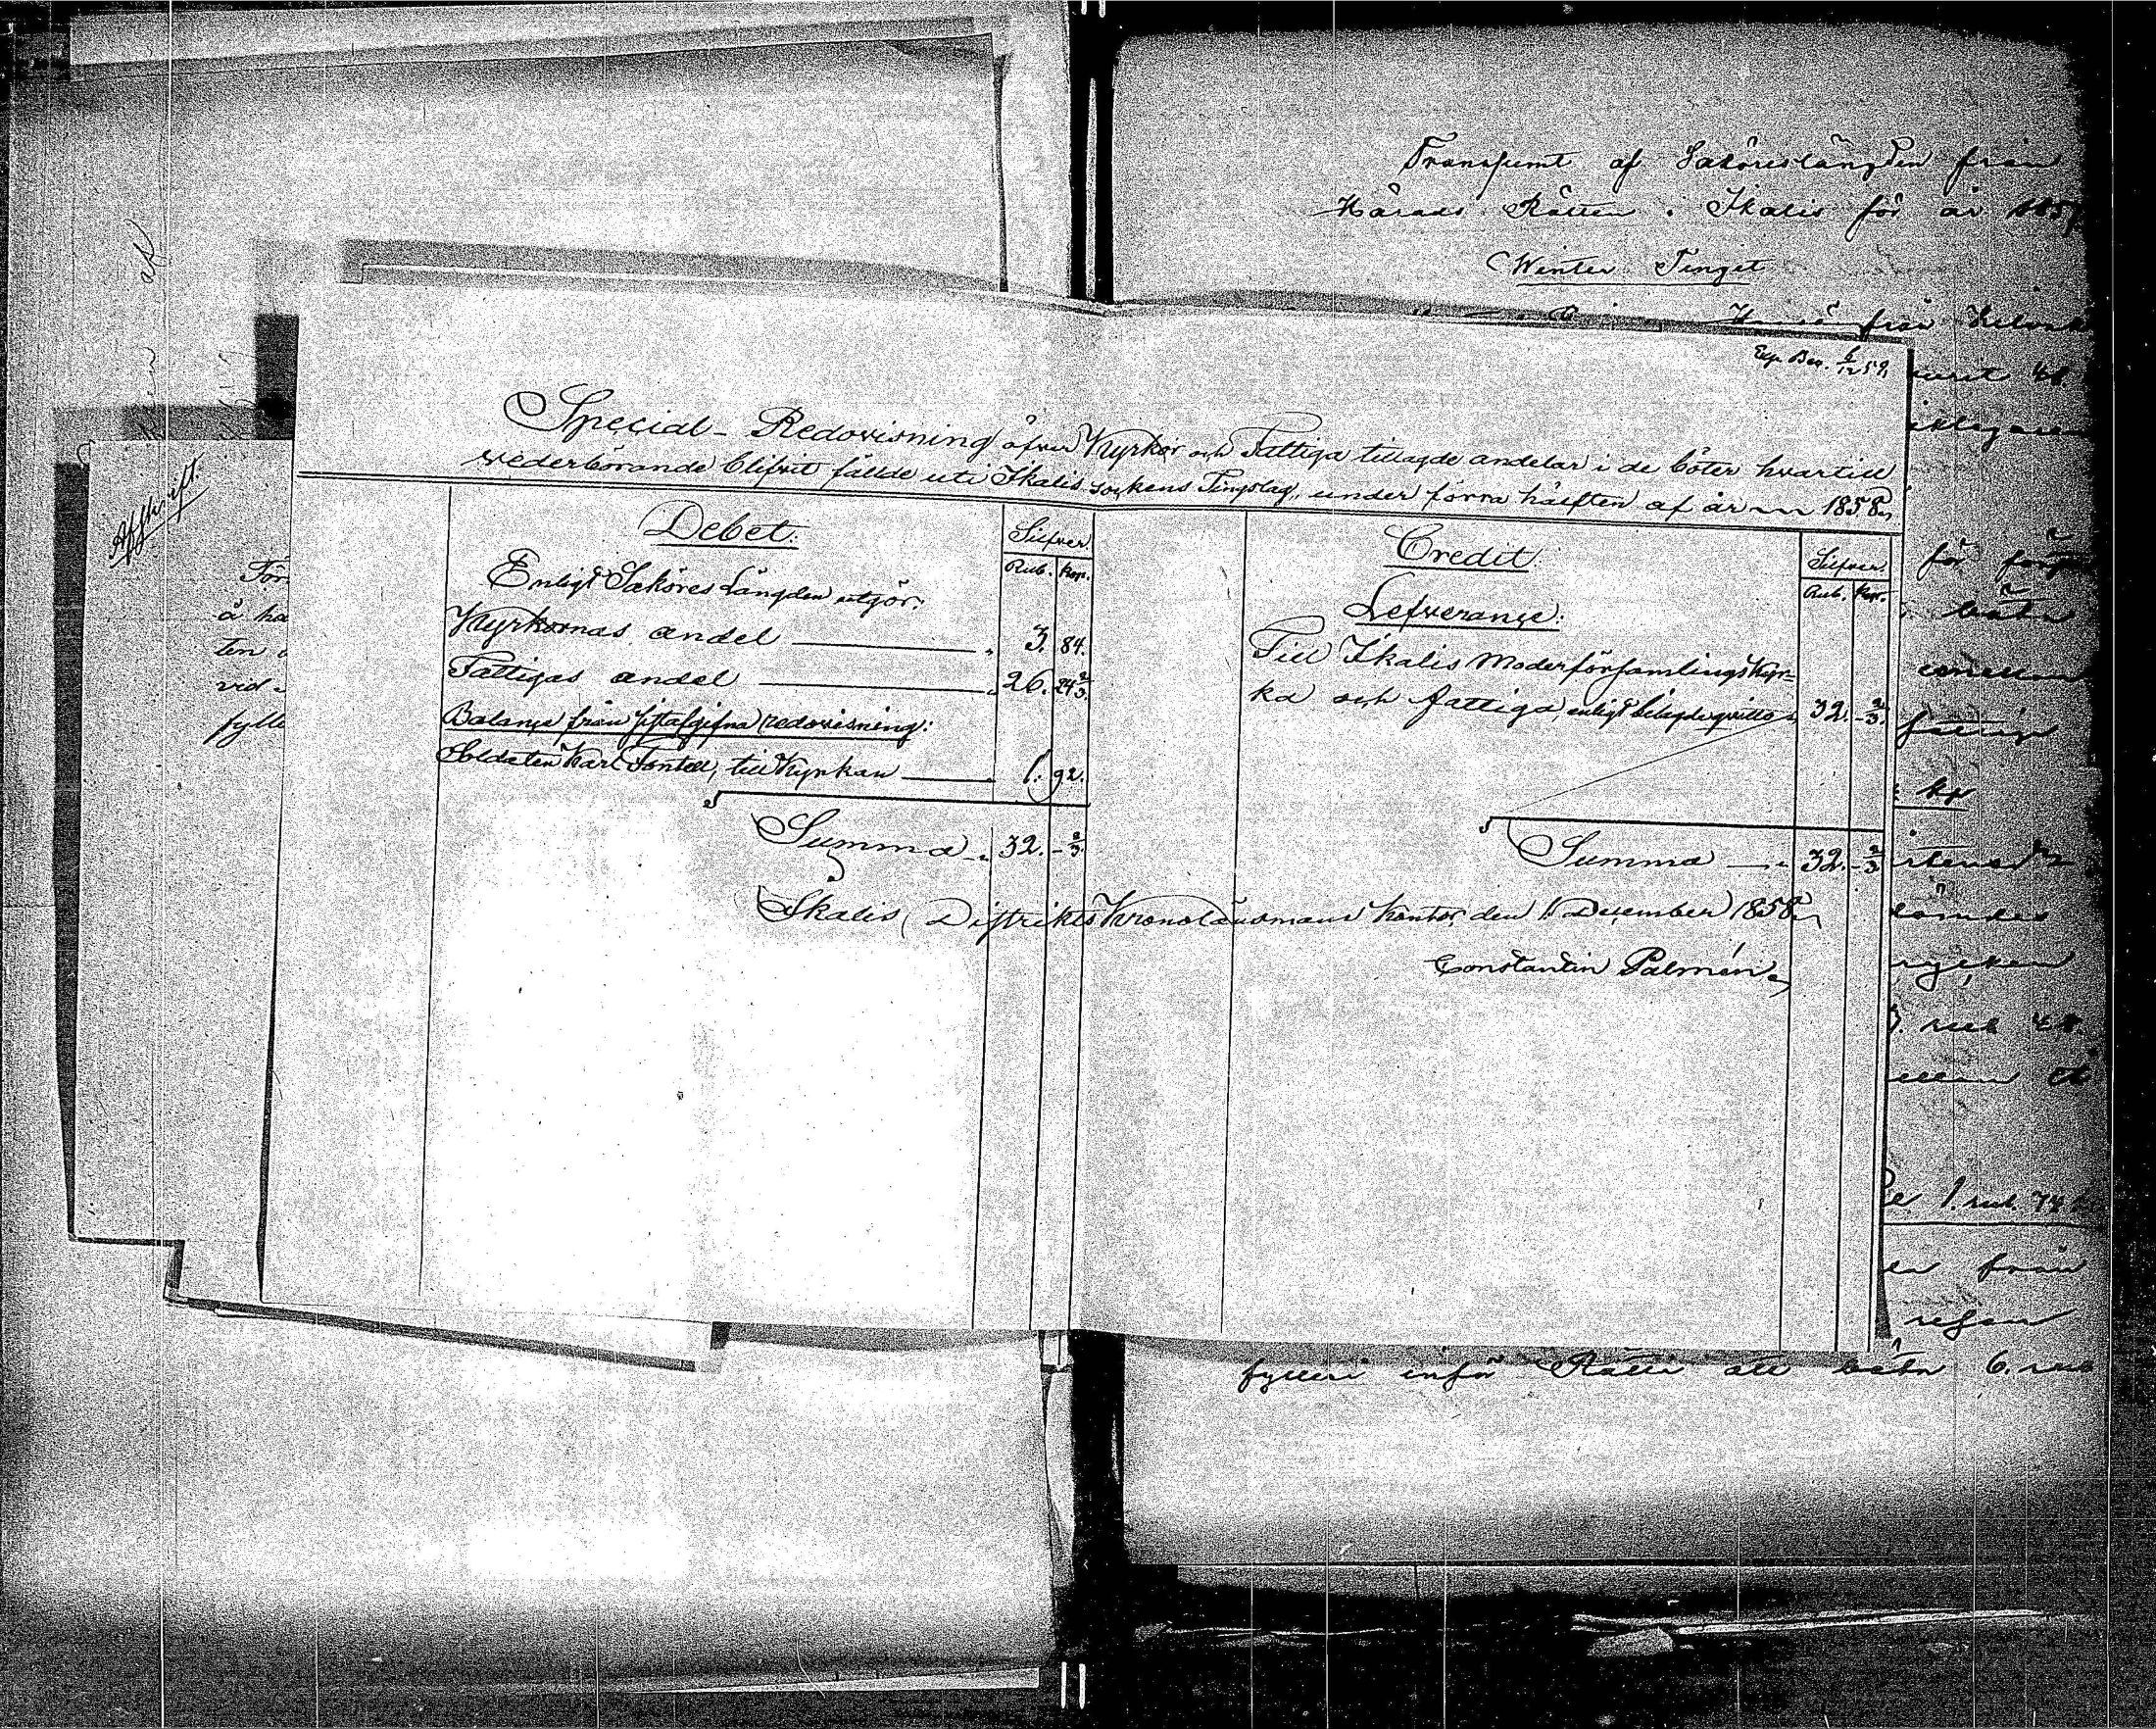 Transsumt af Saköreslängden från
Härads Rätten i Ikalis för år 1857
Winter Tinget
från
Exp. Bev. 6/12 59.
Special-Redovisning öfver Kyrkor och Fattiga tillagde andelar i de böter hvartill
vederbörande blifvit fällde uti Ikalis Sockens Tingslag, under förra hälften af år 1858.
Debet.
Silfver
Rub. Kop.
Enligt Saköres Längden utgör:
Kyrkornas andel 3. 84.
Fattigas andel 26. 24 2/3.
Balance från sistafgifna redovisning:
Soldaten Karl Fontell, till Kyrkan 1. 92.
Summa 32. - 2/3.
Credit.
Silfver
Rub. Kop.
Lefverance:
Till Ikalis Moderförsamlings Kyr-
ka och fattiga, enligt bilagde qvitto 32. - 2/3.
Summa 32. - 2/3
Ikalis, Distrikts Kronolänsmans Kontor, den 1 December 1858.
Constantin Palmén
Afskrift.
å ha
ten
vid
fylle
för
böta
kp
rub 48
1. rub. 74
från
resan
fylleri inför Rätta att böta 6. rub